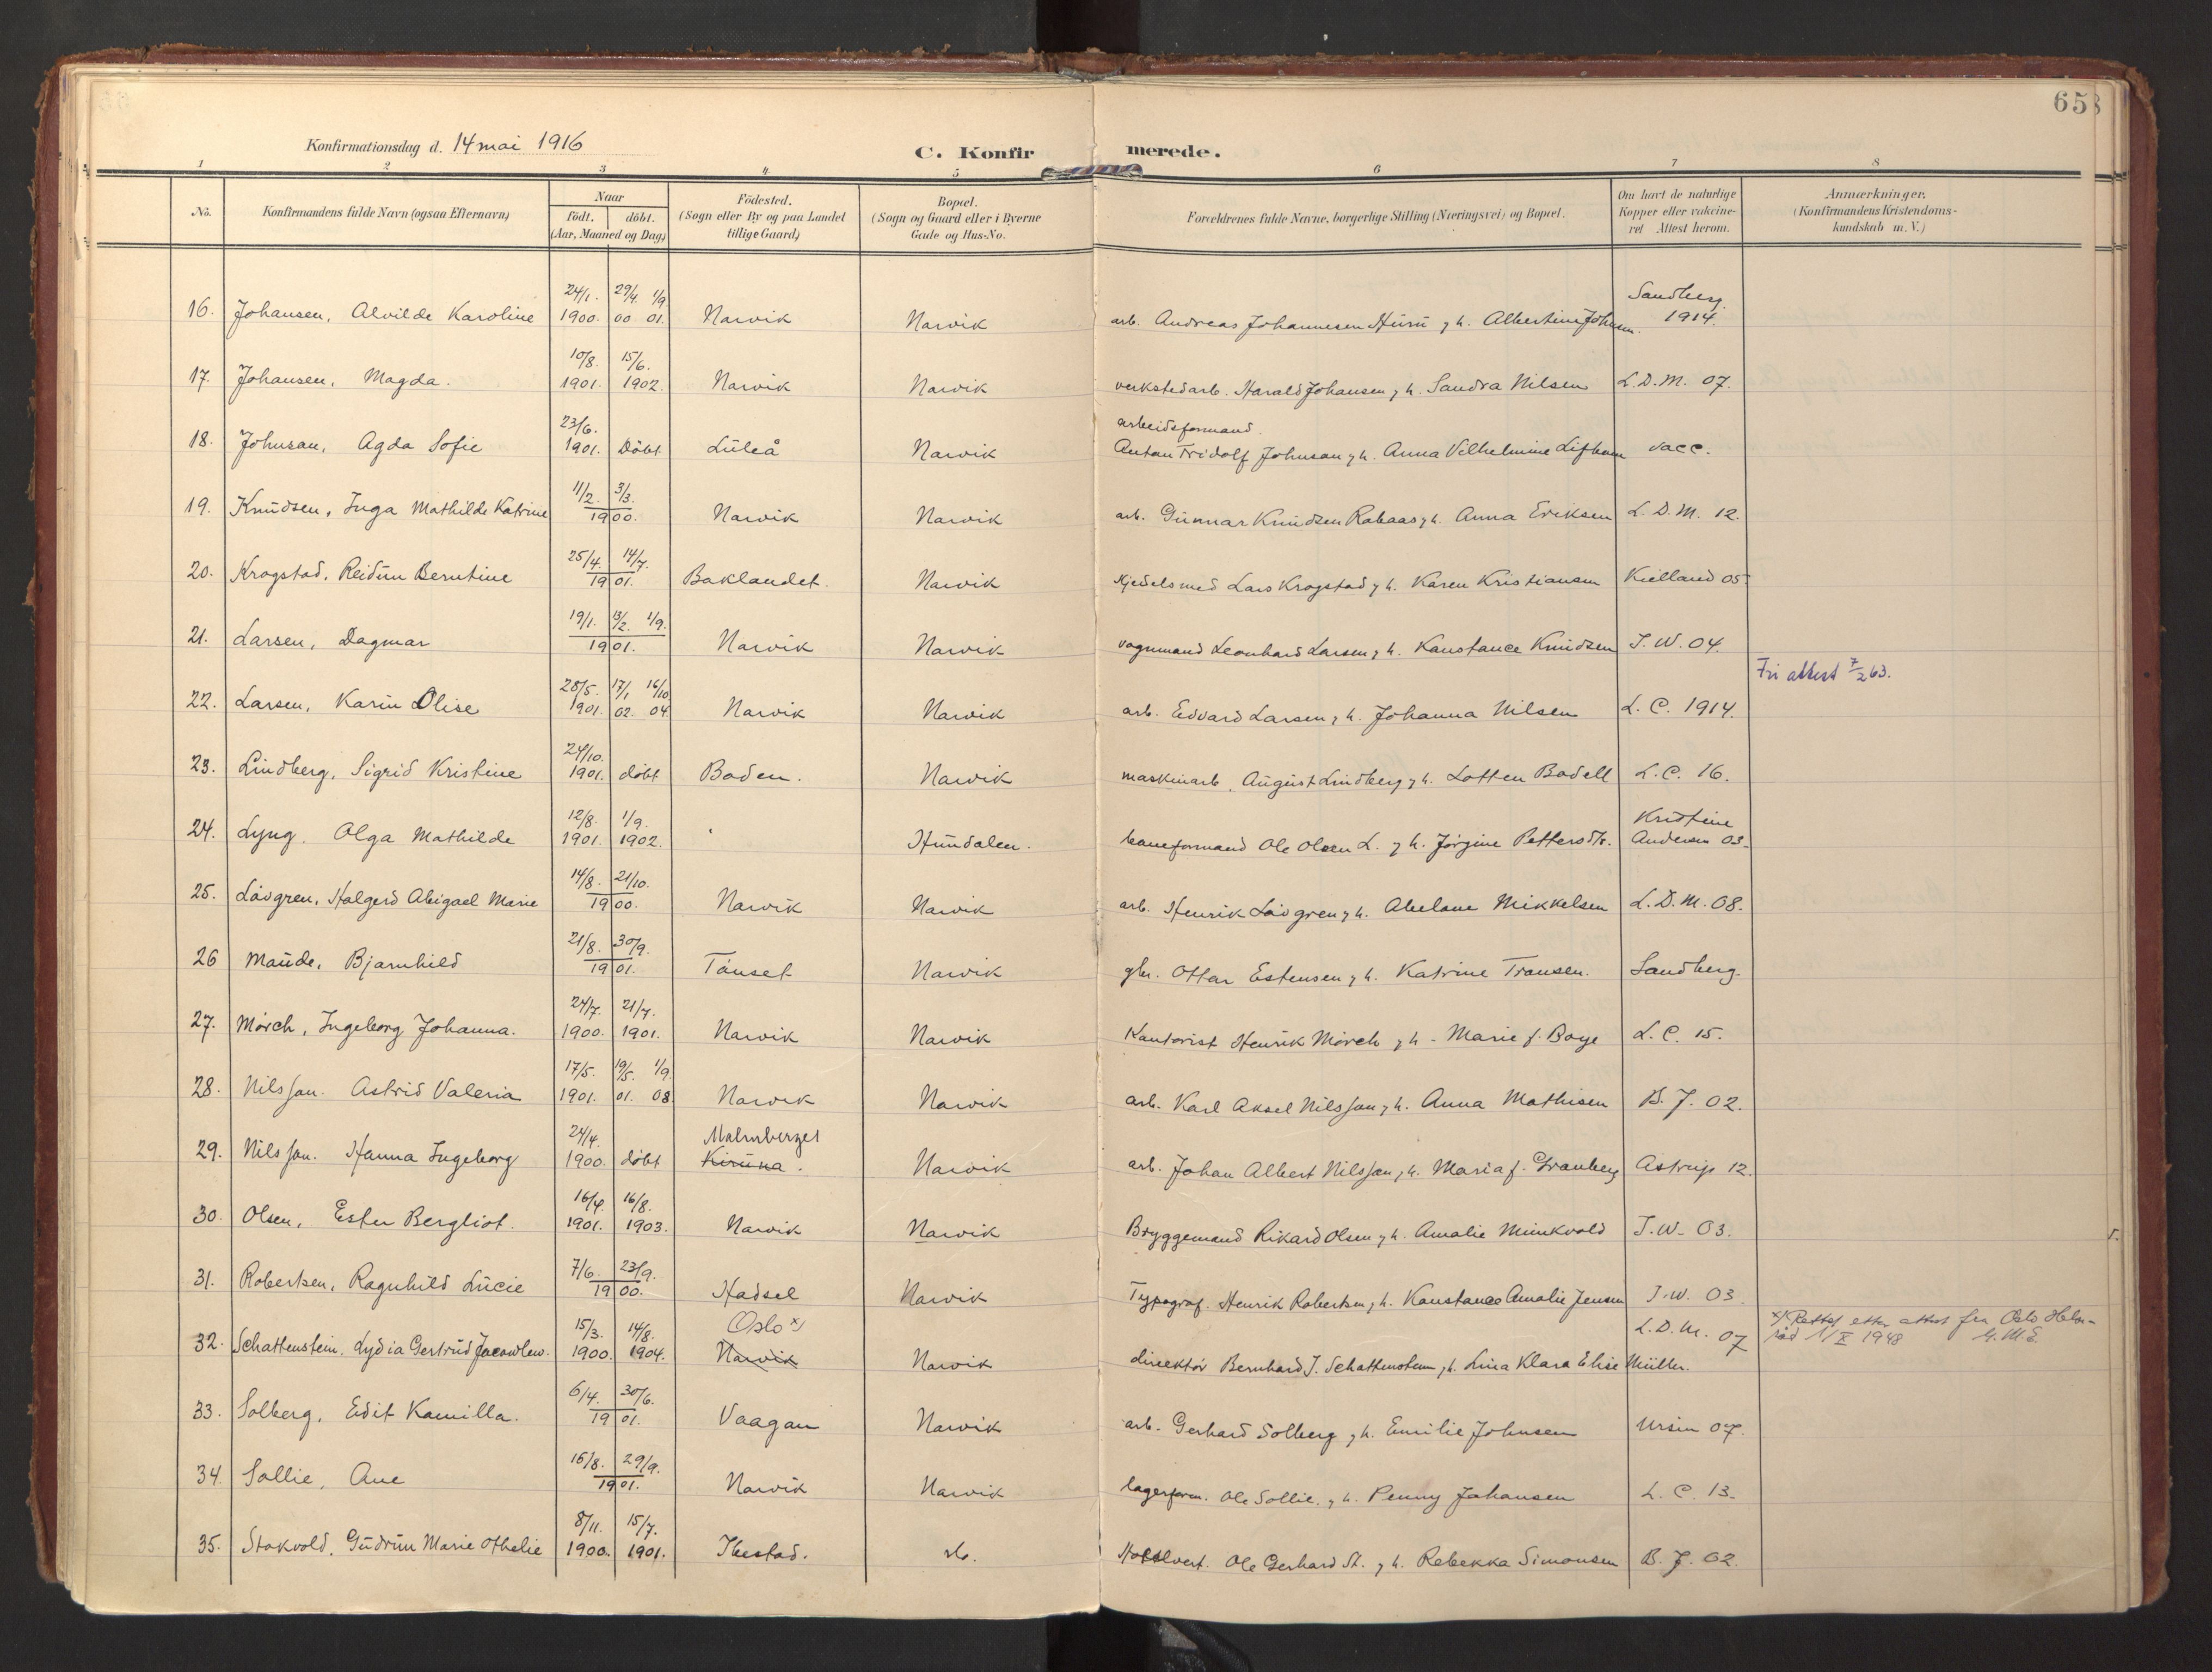 658
Konfirmationsdag d. 14 mai 1916
C. Konfirmerede.
1 2 3 4 5 6 7 8
No. Konfirmandens fulde Navn (ogsaa Efternavn) Naar født. døbt. (Aar, Maaned og Dag) Födested. (Sogn eller By og paa Landet tillige Gaard) Bopæl. (Sogn og Gaard eller i Byerne Gade og Hus-No. Forældrenes fulde Navne, borgerlige Stilling (Næringsvei) og Bopæl. Om havt de naturlige Kopper eller vakcineret Attest herom. Anmærkninger, (Konfirmandens Kristendomskundskab m. V.)
16. Johansen, Alvilde Karoline 24/1. 1900. 29/4. 00 1/9 01. Narvik Narvik arb. Andreas Johannesen h. Albertine Sandberg. 1914.
17. Johansen, Magda. 10/8. 1901. 15/6. 1902. Narvik Narvik verkstedarb. Harald Johansen, h. Sandra Nilsen L.D.M. 07.
18. Johnsan, Agda Sofie 23/6. 1901. Döbt Luleå Narvik arbeidsformand. Anton Fridolf Johnsan, h. Anna Vilhelmine vacc.
19. Knudsen, Inga Mathilde Katrine 11/2. 3/3. 1900. Narvik Narvik arb. Gunnar Knudsen Rabaas, h. Anna Eriksen L.D.M. 12.
20. Krogstad, Reidun Berntine 25/4. 14/7. 1901. Baklandet. Narvik Kjedelsmed Lars Krogstad, h. Karen Kristiansen Kielland 05
21. Larsen, Dagmar 19/1. 13/2. 1/9. 1901. Narvik Narvik vognmand Leonhard Larsen, h. Konstance Knudsen J.W. 04.
22. Larsen, Karin Olise 28/5. 1901. 17/1 02. 16/10 04. Narvik Narvik arb. Edvard Larsen, h. Johanna Nilsen L.C. 1914. Fri attest 7/2 63.
23. Lindberg, Sigrid Kristine 24/10. 1901. döbt Boden. Narvik maskinarb. August Lindberg, h. Lotten Bodell L.C. 16.
24. Lyng. Olga Mathilde 12/8. 1901. 1/9. 1902. Hundalen. baneformand Ole Olsen L. h. Jörgine Pettersdtr. Kristine Andersen 03.
25. Lövgren, Halgerd Abigael Marie 14/8. 21/10. 1900. Narvik Narvik arb. Henrik Lövgren, h. Abelone Mikkelsen L.D.M. 08.
26 Maude, Bjarnhild 21/8. 30/9. 1901. Tönset Narvik gbr. Ottar Estensen, h. Katrine Transen. Sandberg.
27. Mörch, Ingeborg Johanna. 24/7. 1900. 21/7. 1901. Narvik Narvik Kontorist Henrik Mörch, h. Marie f. Boye L.C. 15.
28. Nilsson. Astrid Valeria 17/5. 1901. 19/5. 01. 1/9. 08 Narvik Narvik arb. Karl Aksel Nilsson, h. Anna Mathisen B.J. 02.
29. Nilsson. Hanna Ingeborg 24/4. 1900. döbt Malmberget Kiruna. Narvik arb. Johan Albert Nilsson, h. Maria f. Granberg Astrup 12.
30. Olsen, Ester Bergliot. 16/4. 1901. 16/8. 1903. Narvik Narvik Bryggemand Rikard Olsen, h. Amalie Munkvold J.W. 03.
31. Robertsen, Ragnhild Lucie 7/6. 23/9. 1900. Hadsel Narvik Typograf. Henrik Robertsen, h. Konstance Amalie Jensen J.W. 03
32. Schattenstein, Lydia Gertrud Jacowlew. 15/3. 1900. 14/8. 1904. Oslo x) Narvik Narvik direktör Bernhard J. Schattenstein, h. Lina Klara Elise Müller. L.D.M. 07 x) Rettet etter attest fra Oslo Helseråd 1/X 1948
33. Solberg, Edit Kamilla. 6/4. 30/6. 1901. Vaagan Narvik arb. Gerhard Solberg, h. Emilie Johnsen Ursin 07.
34. Sollie, Ane 16/8. 29/9. 1901. Narvik Narvik lagerform. Ole Sollie, h. Penny Johansen L.C. 13.
35. Stokvold, Gudrun Marie Othelie 8/11. 1900. 15/7. 1901. Ibestad. sb. Hotelvert. Ole Gerhard St., h. Rebekka Simonsen B.J. 02.